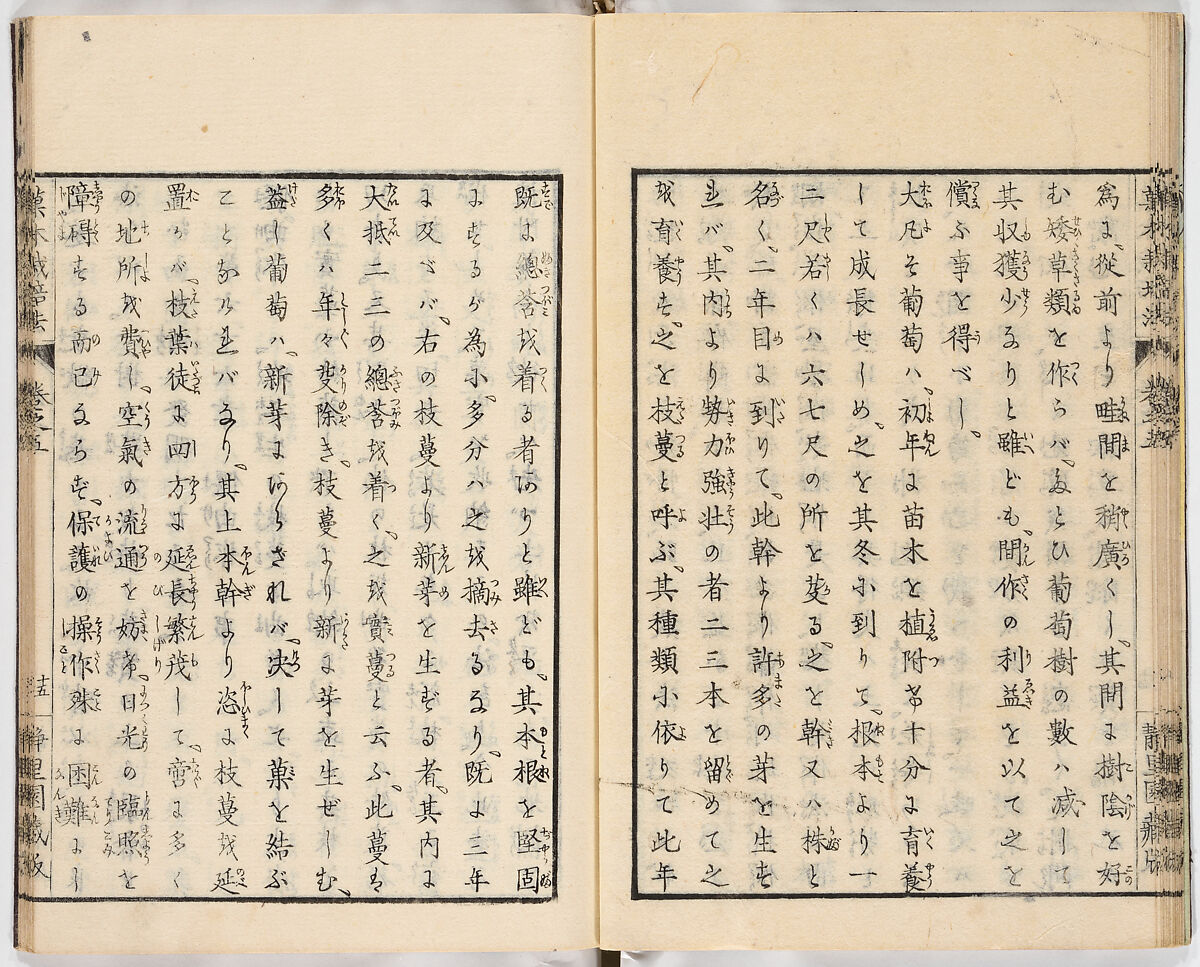 爲に、從前より畦間を稍廣くし、其間に樹陰を好
む矮草類を作らバ、たとひ葡萄樹の數ハ减して
其收獲少なりと雖ども、間作の利益を以て之を
償ふ事を得べし、
大凡そ葡萄ハ、初年に苗木を植附け十分に育養
して成長せしめ、之を其冬に到りて、根本より一
二尺若くハ六七尺の所を芟る、之を幹又ハ株と
名く、二年目に到りて、此幹より許多の芽を生ず
れバ、其内より勢力強壯の者二三本を留めて之
を育養す、之を枝蔓と呼ぶ、其種類に依りて此年
菓木栽培法
卷之五
十五
静里園藏版
既に總莟を着る者ありと雖ども、其本根を堅固
にするが為に、多分ハ之を摘去るなり、既に三年
に及べバ、右の枝蔓より新芽を生ずる者、其内に
大抵二三の總莟を着く、之を實蔓と云ふ、此蔓は
多くハ年々芟除き、枝蔓より新に芽を生ぜしむ、
蓋し葡萄ハ、新芽にあらされバ、决して菓を結ぶ
ことなけれバなり、其上本幹より恣に枝蔓を延
置かバ、枝葉徒に四方に延長繁茂して、啻に多く
の地所を費し、空氣の流通を妨け、日光の臨照を
障碍する而已ならず、保護の操作殊に困難にし
菓木栽培法
卷之五
十五
静里園藏版